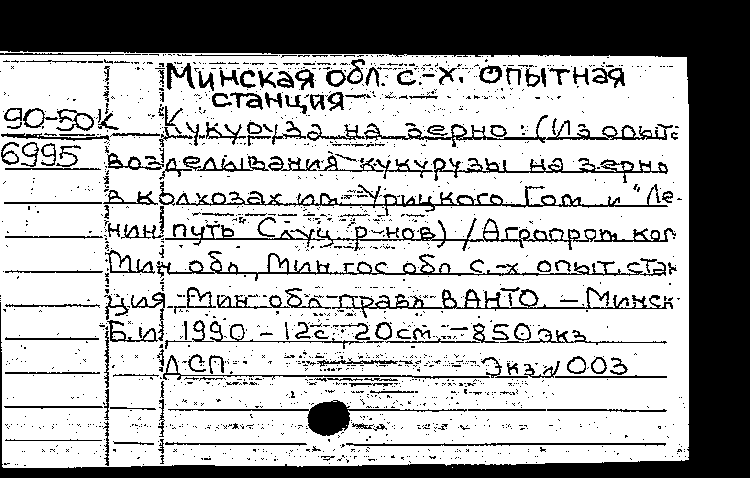 Минская обл. с.-х. опытная
станция
90-50к Кукуруза на зерно : (Из опыт.
6995 возделывания кукурузы на зерно
в колхозах им. Урицкого Гом. и "Ле-
нин. путь" Слуц. р-нов) / Агропром. ком
Мин. обл., Мин. гос. обл. с.-х. опыт. стан
ция, Мин. обл. правл. ВАНТО. – Минск
Б.и., 1990 – 12с.; 20см. – 850экз.
ДСП. Экз. № 003